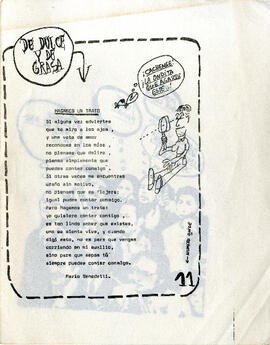 DE DULCE
Y DE
GRASA
HAGAMOS UN TRATO
Si alguna vez adviertes
que te mira a los ojos,
y una veta de amor
reconoces en los míos
no pienses que deliro,
piensa simplemente que
puedes contar conmigo.
Si otras veces me encuentras
uraño sin motivo,
no pienses que es flojera:
igual puedes contar conmigo.
Pero hagamos un trato:
yo quisiera contar contigo,
es tan lindo saber que existes,
uno se siente vivo, y cuando
digo esto, no es para que vengas
corriendo en mi auxilio,
sino para que sepas tú
siempre puedes contar conmigo.
Mario Benedetti.
11